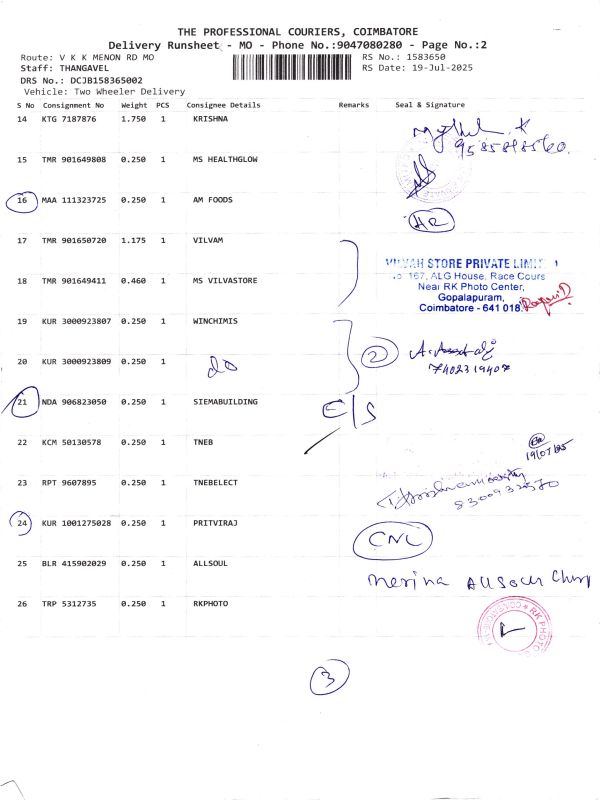 THE PROFESSIONAL COURIERS, COIMBATORE
Delivery Runsheet - MO - Phone No.:9047080280 - Page No.:2
Route: V K K MENON RD MO
RS No.: 1583650
Staff: THANGAVEL
RS Date: 19-Jul-2025
DRS No.: DCJB158365002
Vehicle: Two Wheeler Delivery
S No Consignment No Weight PCS Consignee Details Remarks Seal & Signature
14 KTG 7187876 1.750 1 KRISHNA
9585898560.
15 TMR 901649808 0.250 1 MS HEALTHGLOW
16 MAA 111323725 0.250 1 AM FOODS
HR
17 TMR 901650720 1.175 1 VILVAM
VILVAH STORE PRIVATE LIMIT
167, ALG House, Race Cours
18 TMR 901649411 0.460 1 MS VILVASTORE
Near RK Photo Center,
Gopalapuram,
Coimbatore - 641 018.
19 KUR 3000923807 0.250 1 WINCHIMIS
2
20 KUR 3000923809 0.250 1 do
7402319407
21 NDA 906823050 0.250 1 SIEMABUILDING C/S
22 KCM 50130578 0.250 1 TNEB
19/07/25
23 RPT 9607895 0.250 1 TNEBELECT
8300932570
24 KUR 1001275028 0.250 1 PRITVIRAJ CNL
25 BLR 415902029 0.250 1 ALLSOUL
Merina Allsoul Church
26 TRP 5312735 0.250 1 RKPHOTO
RK PHOTO
3